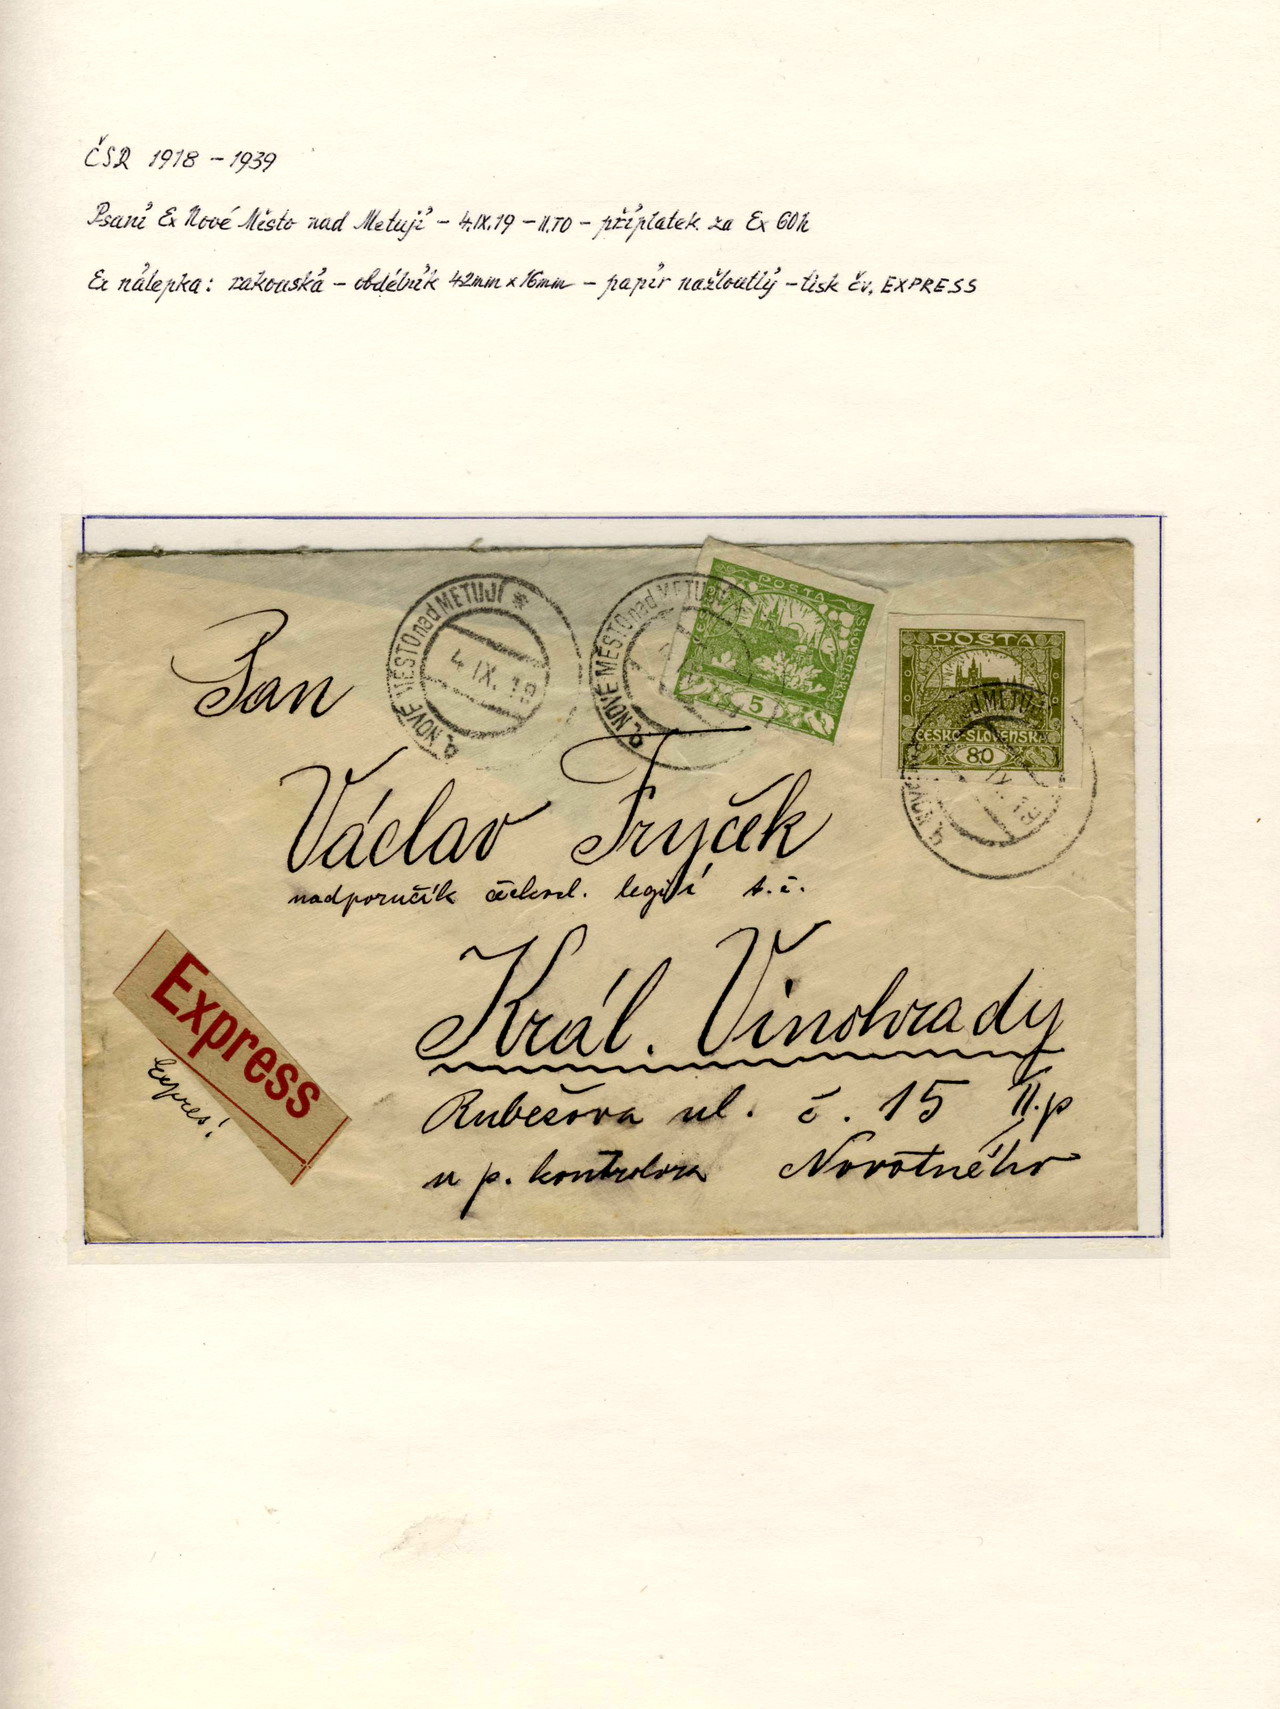 ČSR 1918 - 1939
Psaní Ex Nové Město nad Metují - 4.IX.19 - II.TO - příplatek za Ex 60h
Ex nálepka: rakouská - obdélník 42mm x 16mm - papír nažloutlý - tisk čv. EXPRESS
NOVÉ MĚSTO nad METUJÍ
4 IX. 19
NOVÉ MĚSTO nad METUJÍ
POŠTA
SLOVENSKÁ
5
POŠTA
ČESKO-SLOVENSKÁ
80
NOVÉ nad METUJÍ
IX. 19
Pan
Václav Fryček
nadporučík legií t.č.
Král. Vinohrady
Rubešova ul. č. 15 II.p
u p. kontrolora Novotného
Express
Expres!